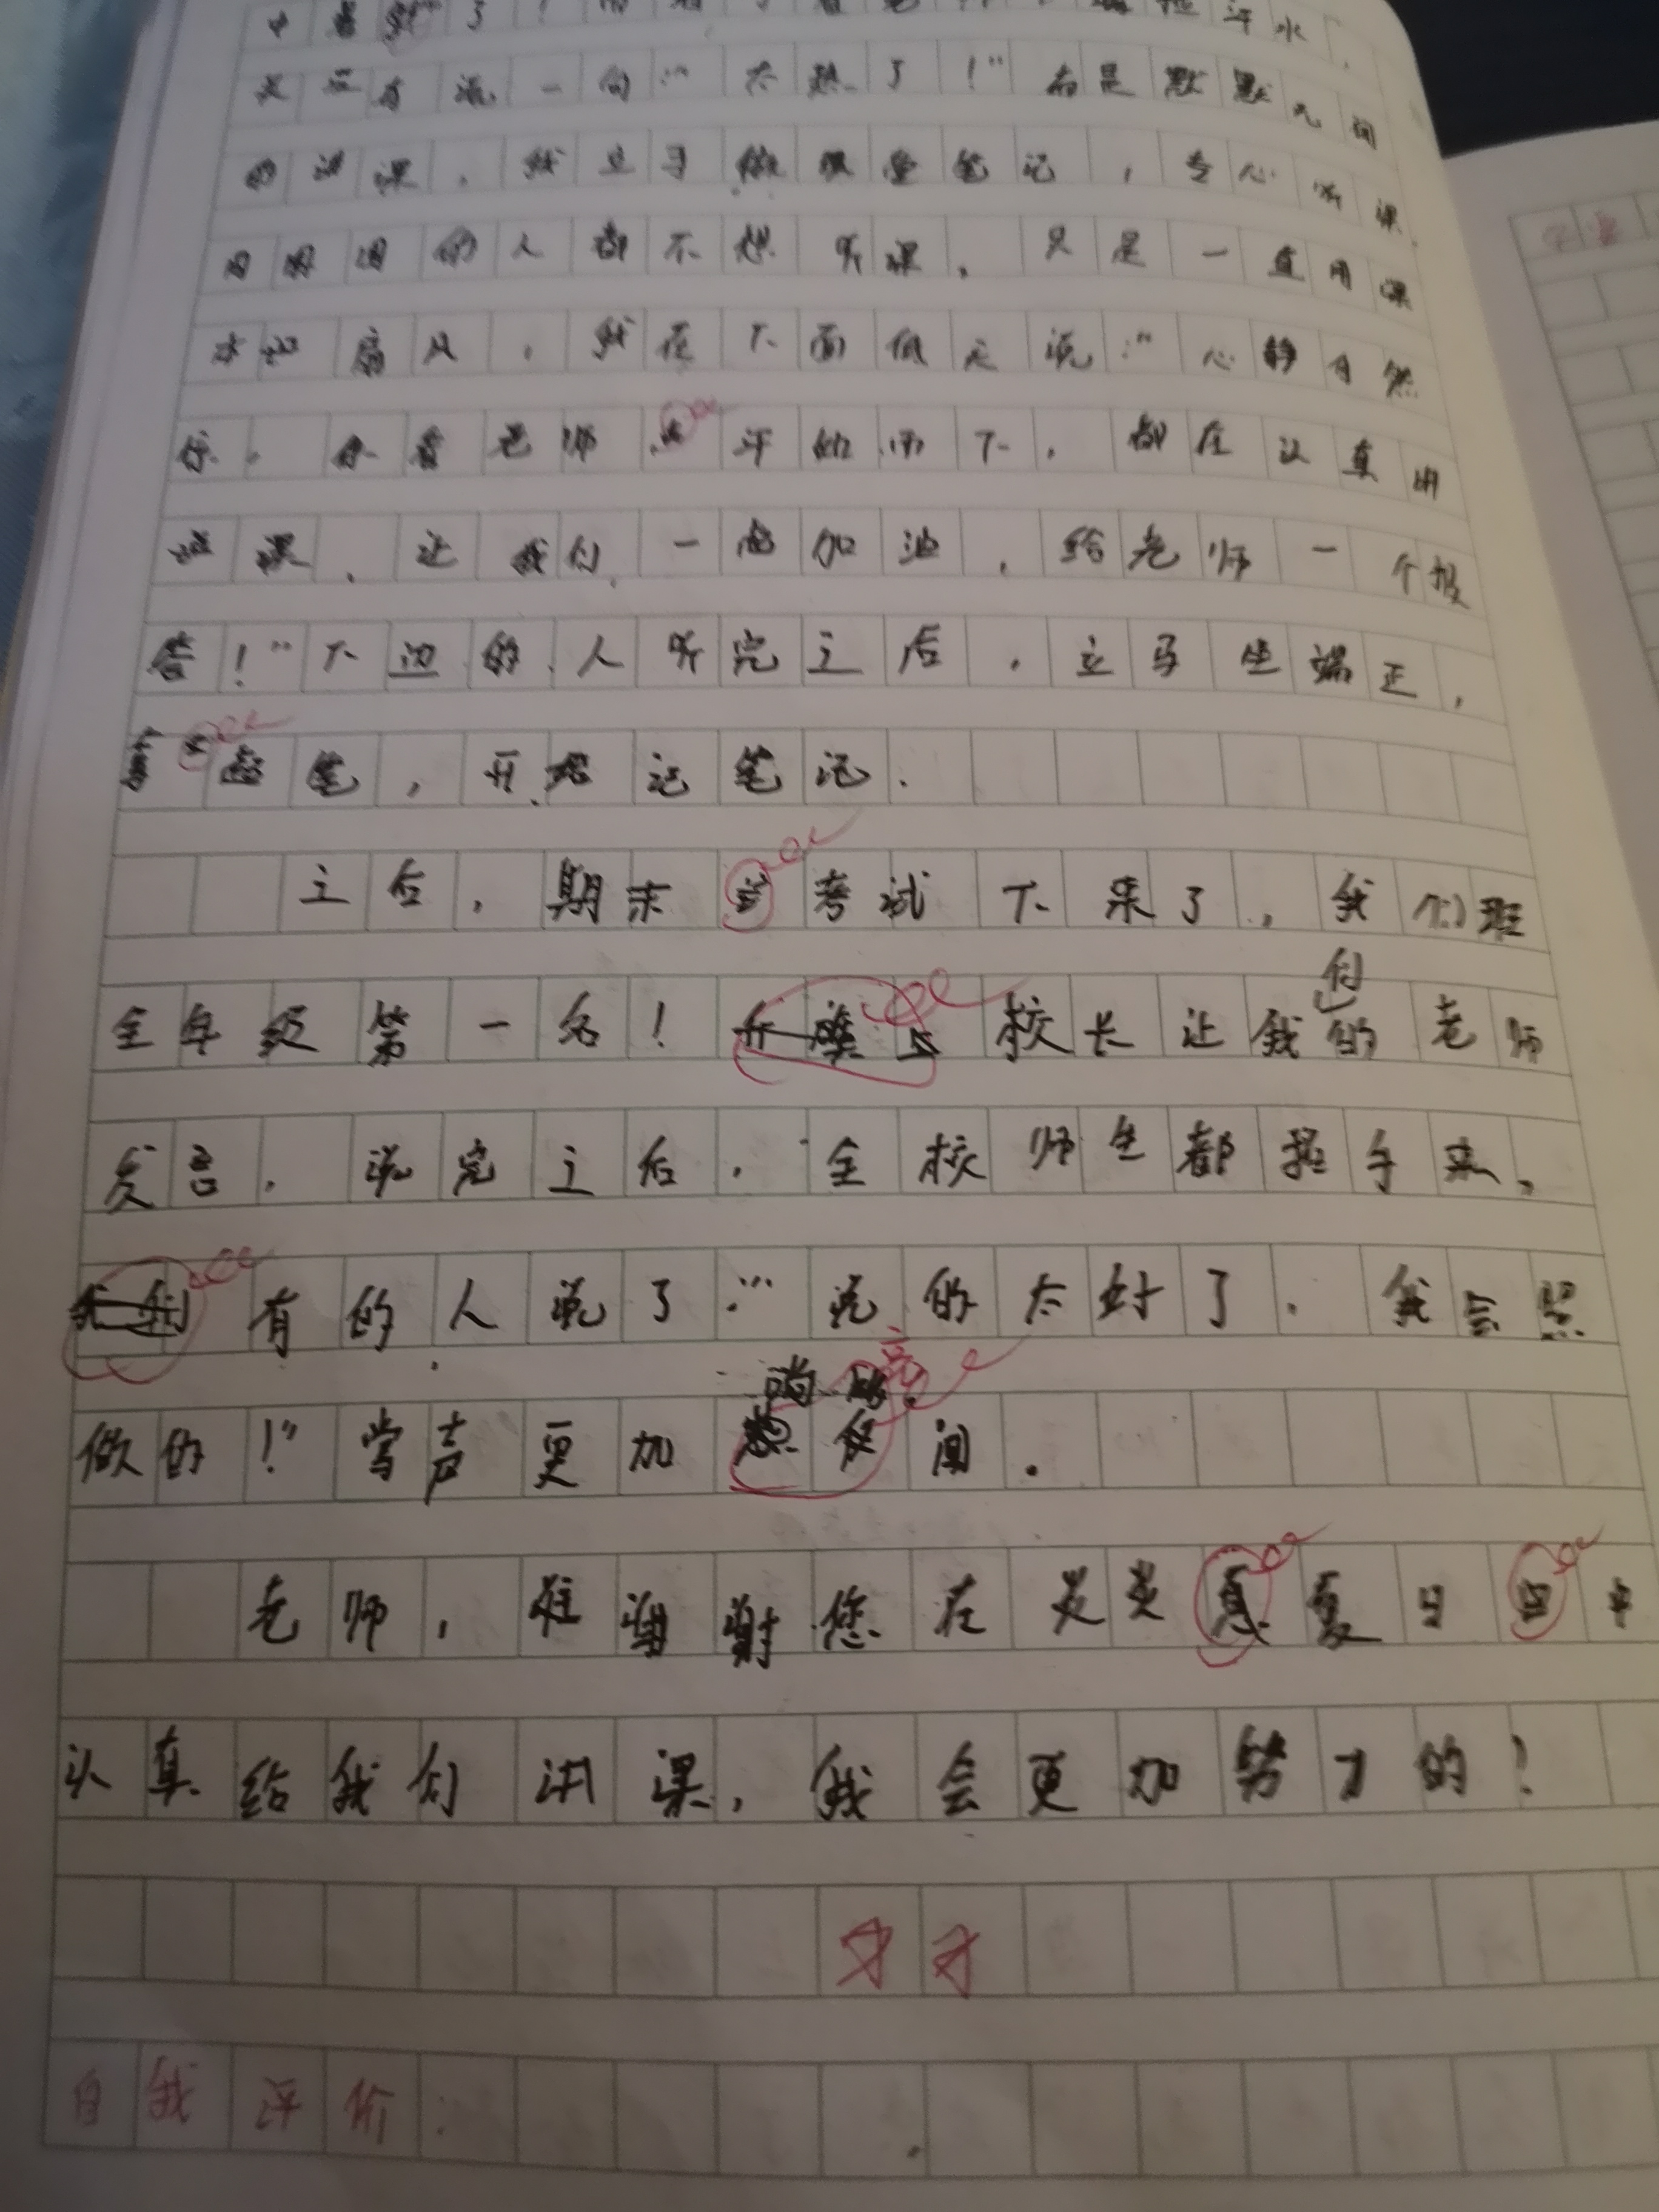 汗水,
并没有说一句:“太热了!”而是默默无闻
的讲课,我立马做课堂笔记,专心听课,
周围的人都不想听课,只是一直用课
本扇风,我在下面低声说:“心静自然
凉,你看老师汗如雨下,都在认真讲
课,让我们一起加油,给老师一个报
答!”下边的人听完之后,立马坐端正,
拿起笔,开始记笔记.
之后,期末考试下来了,我们班
全年级第一名!校长让我们的老师
发言,说完之后,全校师生都拍手来,
有的人说了:“说的太好了,我会照
做的!”掌声更加响亮闻.
老师,谢谢您在炎炎夏日中
认真给我们讲课,我会更加努力的!
自我评价: